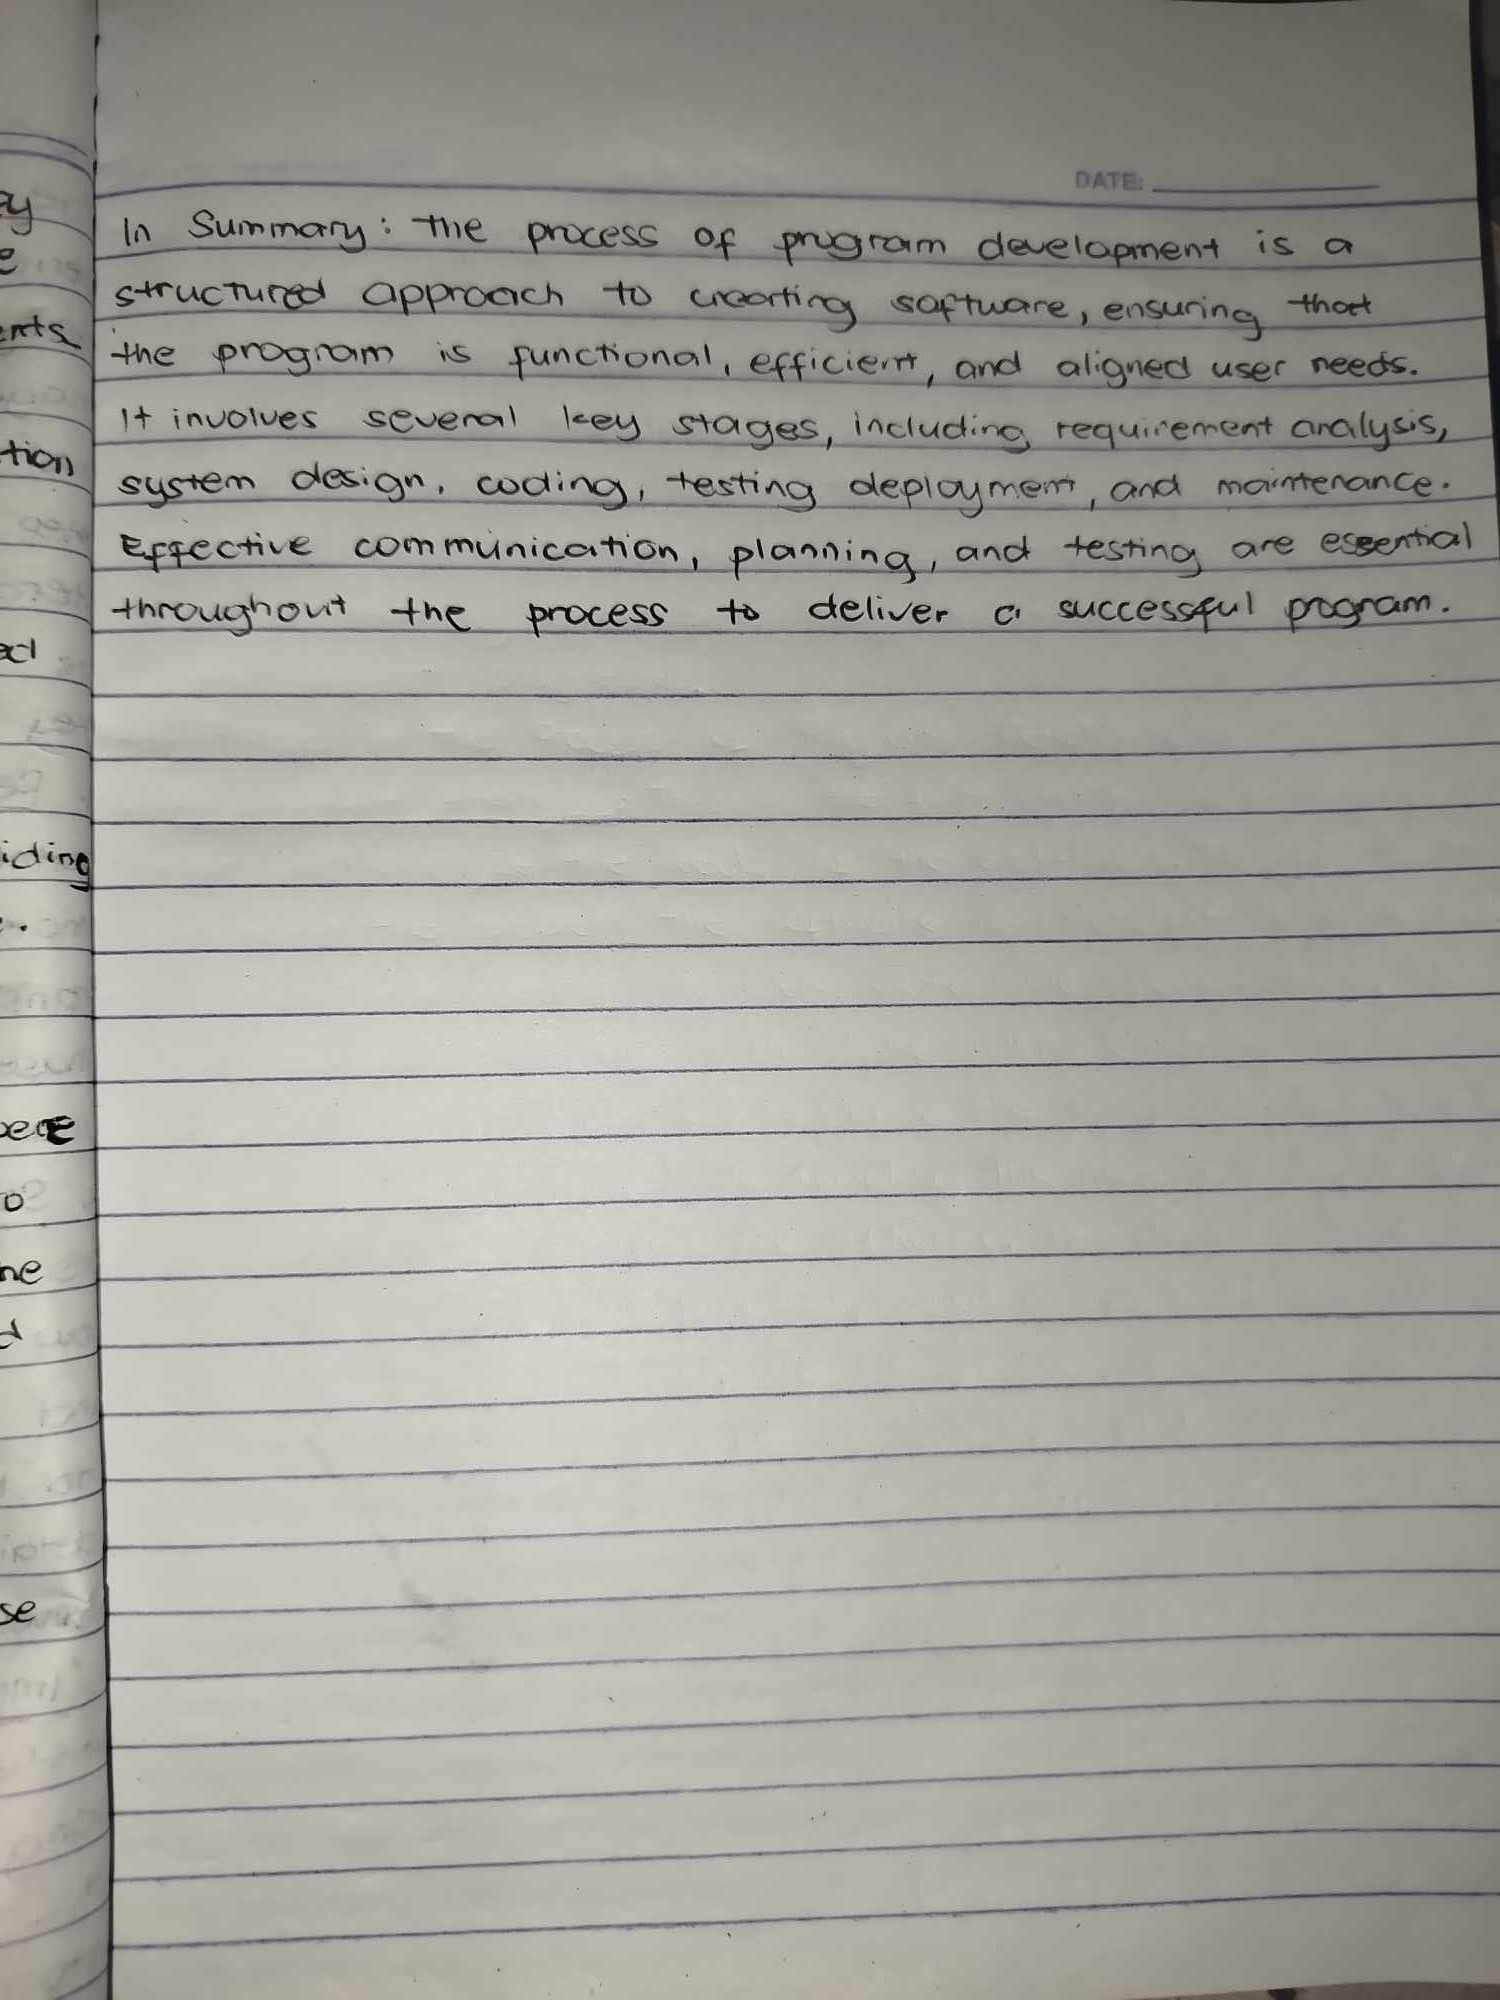 DATE:
In Summary: the process of program development is a
structured approach to creating software, ensuring that
the program is functional, efficient, and aligned user needs.
It involves several key stages, including requirement analysis,
system design, coding, testing deployment, and maintenance.
Effective communication, planning, and testing are essential
throughout the process to deliver a successful program.
ey
e
ents
tion
ed
iding
.
o
he
se